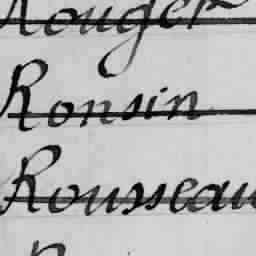 Rouger
Ronsin
Rousseau